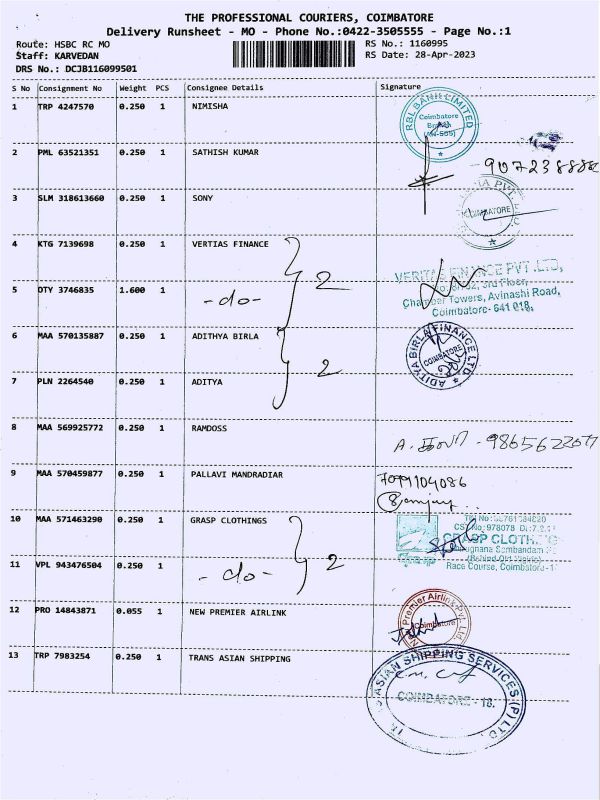 THE PROFESSIONAL COURIERS, COIMBATORE
Delivery Runsheet - MO - Phone No.:0422-3505555 - Page No.:1
Route: HSBC RC MO RS No.: 1160995
Staff: KARVEDAN RS Date: 28-Apr-2023
DRS No.: DCJB116099501
S No Consignment No Weight PCS Consignee Details Signature
1 TRP 4247570 0.250 1 NIMISHA
RBL BANK LIMITED
Coimbatore
Branch
2 PML 63521351 0.250 1 SATHISH KUMAR
3 SLM 318613660 0.250 1 SONY
COIMBATORE
4 KTG 7139698 0.250 1 VERTIAS FINANCE
2
VERITAS FINANCE PVT.LTD,
3rd Floor,
5 OTY 3746835 1.600 1 -do-
Chamber Towers, Avinashi Road,
Coimbatore- 641 018.
6 MAA 570135887 0.250 1 ADITHYA BIRLA
2
ADITYA BIRLA FINANCE LTD
COIMBATORE
7 PLN 2264540 0.250 1 ADITYA
8 MAA 569925772 0.250 1 RAMDOSS
9 MAA 570459877 0.250 1 PALLAVI MANDRADIAR
Sanjay
10 MAA 571463290 0.250 1 GRASP CLOTHINGS
2
CST No: 978078
GRASP CLOTHING
Sambandam
Race Course, Coimbatore-1
11 VPL 943476504 0.250 1 -do-
12 PRO 14843871 0.055 1 NEW PREMIER AIRLINK
Premier Airlink Pvt. Ltd
Coimbatore
13 TRP 7983254 0.250 1 TRANS ASIAN SHIPPING
ASIAN SHIPPING SERVICES (P) LTD.
COIMBATORE - 18.